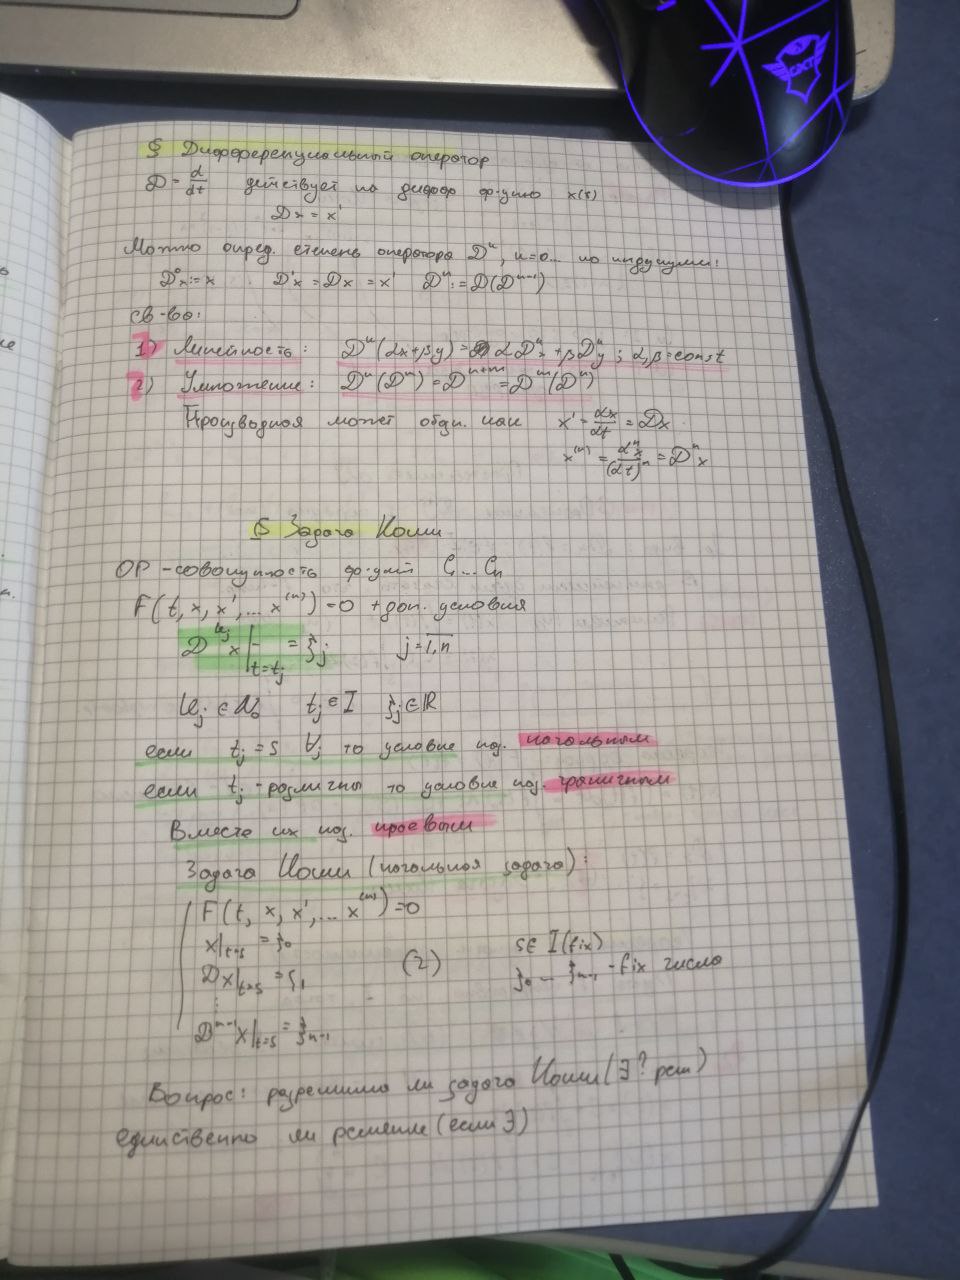 § Дифференциальный оператор
D = d/dt действует на дифф ф-цию x(t)
Dx = x'
Можно опред. степень оператора Dⁿ, n=0... по индукции:
D⁰x := x D'x = Dx = x' Dⁿ := D(Dⁿ⁻¹)
св-во:
1) Линейность: Dⁿ(αx+βy) = αDⁿx + βDⁿy ; α,β = const
2) Умножение: Dⁿ(Dᵐ) = Dⁿ⁺ᵐ = Dᵐ(Dⁿ)
Производная может обозн. как x' = dx/dt = Dx
x⁽ⁿ⁾ = dⁿx/(dt)ⁿ = Dⁿx
§ Задача Коши
ОР - совокупность ф-ций C₁...Cₙ
F(t, x, x', ... x⁽ⁿ⁾) = 0 + доп. условия
D^{k_j} x|_{t=t_j} = ξ_j j = 1,n
k_j ∈ N₀ t_j ∈ I ξ_j ∈ ℝ
если t_j = s ∀j то условие наз. начальным
если t_j - различны то условие наз. граничным
Вместе их наз. краевым
Задача Коши (начальная задача):
F(t, x, x', ... x⁽ⁿ⁾) = 0
x|_{t=s} = ξ₀ s ∈ I (fix)
Dx|_{t=s} = ξ₁ (2) ξ₀ ... ξₙ₋₁ - fix число
⋮
Dⁿ⁻¹x|_{t=s} = ξₙ₋₁
Вопрос: разрешима ли задача Коши (∃? реш)
единственно ли решение (если ∃)
GXT